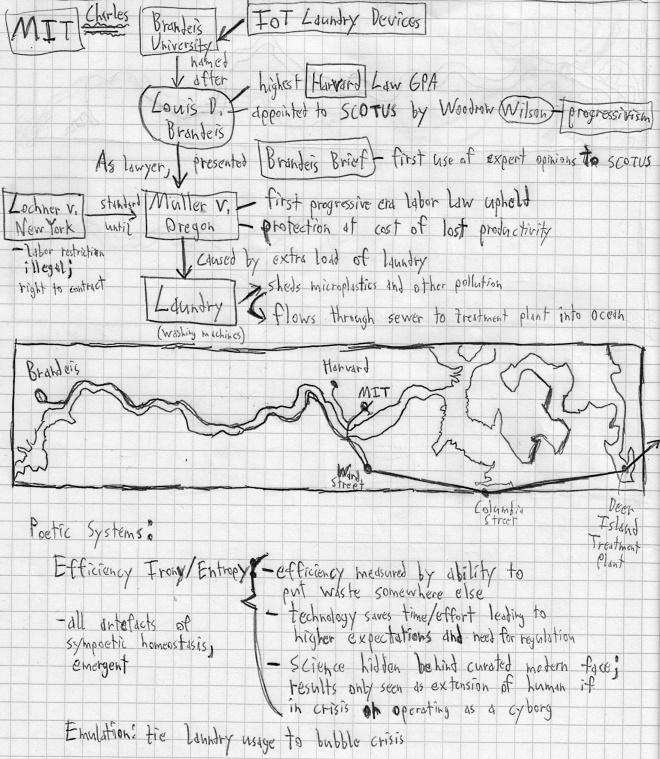 MIT Charles Brandeis University IoT Laundry Devices
named after
Louis D. Brandeis
highest Harvard Law GPA
appointed to SCOTUS by Woodrow Wilson - progressivism
As lawyer, presented Brandeis Brief - first use of expert opinions to SCOTUS
Lochner v. New York
standard until
Muller v. Oregon
- first progressive era labor law upheld
- protection at cost of lost productivity
- labor restriction
illegal;
right to contract
caused by extra load of laundry
Laundry
(washing machines)
sheds microplastics and other pollution
flows through sewer to treatment plant into ocean
Brandeis
Harvard
MIT
Ward Street
Columbia Street
Deer Island Treatment Plant
Poetic Systems:
Efficiency Irony/Entropy:
- efficiency measured by ability to
put waste somewhere else
- technology saves time/effort leading to
higher expectations and need for regulation
- science hidden behind curated modern face;
results only seen as extension of human if
in crisis or operating as a cyborg
- all artefacts of
sympoetic homeostasis,
emergent
Emulation: tie laundry usage to bubble crisis